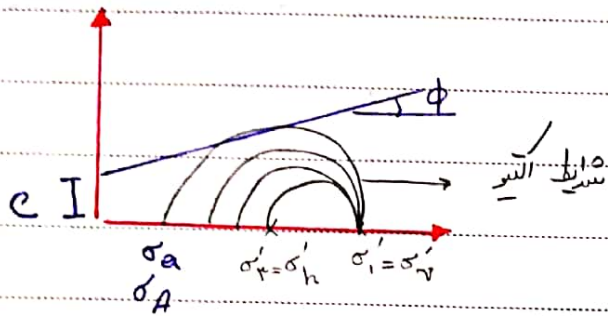 ϕ
شرایط اکتیو
C
σₐ σ'₃=σ'ₕ σ'₁=σ'ᵥ
σ_A